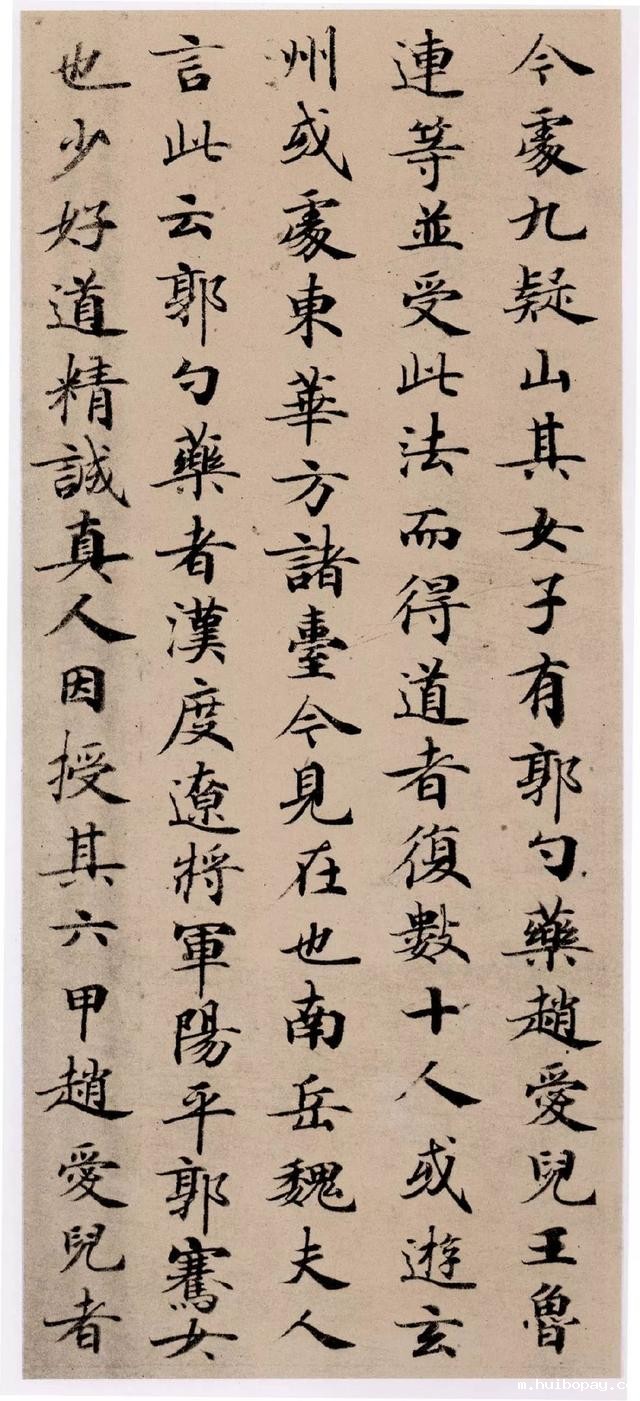 今處九疑山其女子有郭勺藥趙愛兒王魯
連等並受此法而得道者復數十人或遊玄
州或處東華方諸臺今見在也南岳魏夫人
言此云郭勺藥者漢度遼將軍陽平郭騫女
也少好道精誠真人因授其六甲趙愛兒者
m.huibopay.co